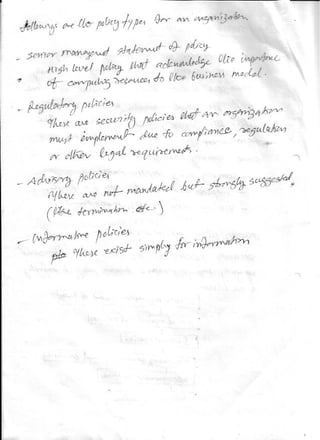 followings are the policy types for an organization.
- Senior management statement of policy
High level policy that acknowledge the importance
of computing resources to the business model.
- Regulatory policies
These are security policies that an organization
must implement due to compliance, regulation
or other legal requirements.
- Advisory policies
These are not mandated but strongly suggested.
(like termination etc.)
- Informative policies
These exist simply for information